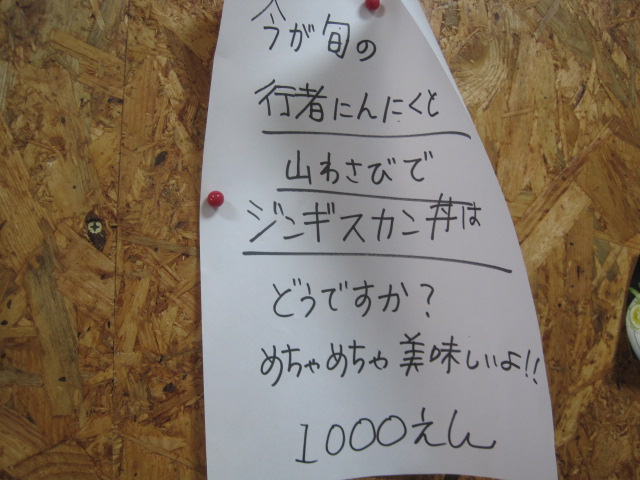 今が旬の
行者にんにくと
山わさびで
ジンギスカン丼は
どうですか？
めちゃめちゃ美味しいよ!!
1000えん